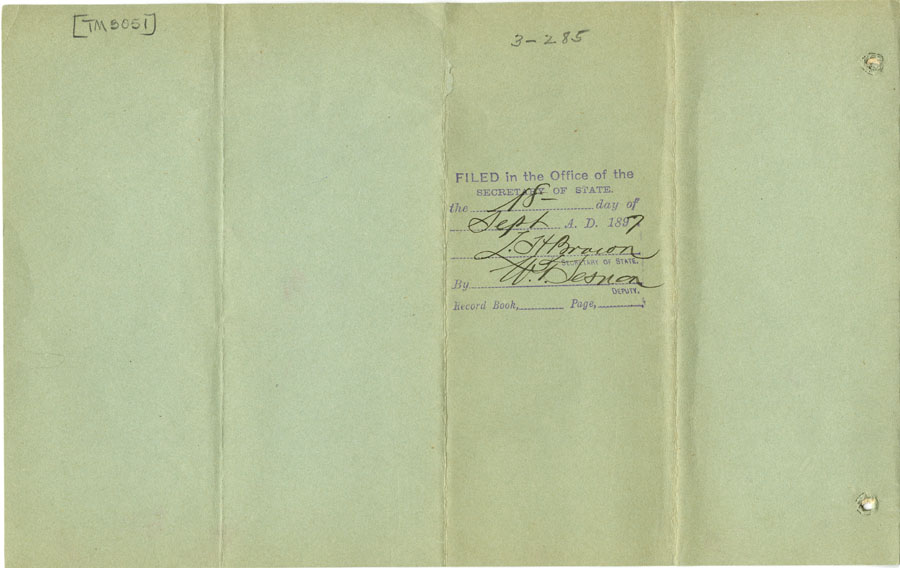 [TM3051]
3-285
FILED in the Office of the
SECRETARY OF STATE.
the 18- day of
Sept A. D. 1897
L. H Brown
SECRETARY OF STATE.
By W. F.
DEPUTY.
Record Book, Page,